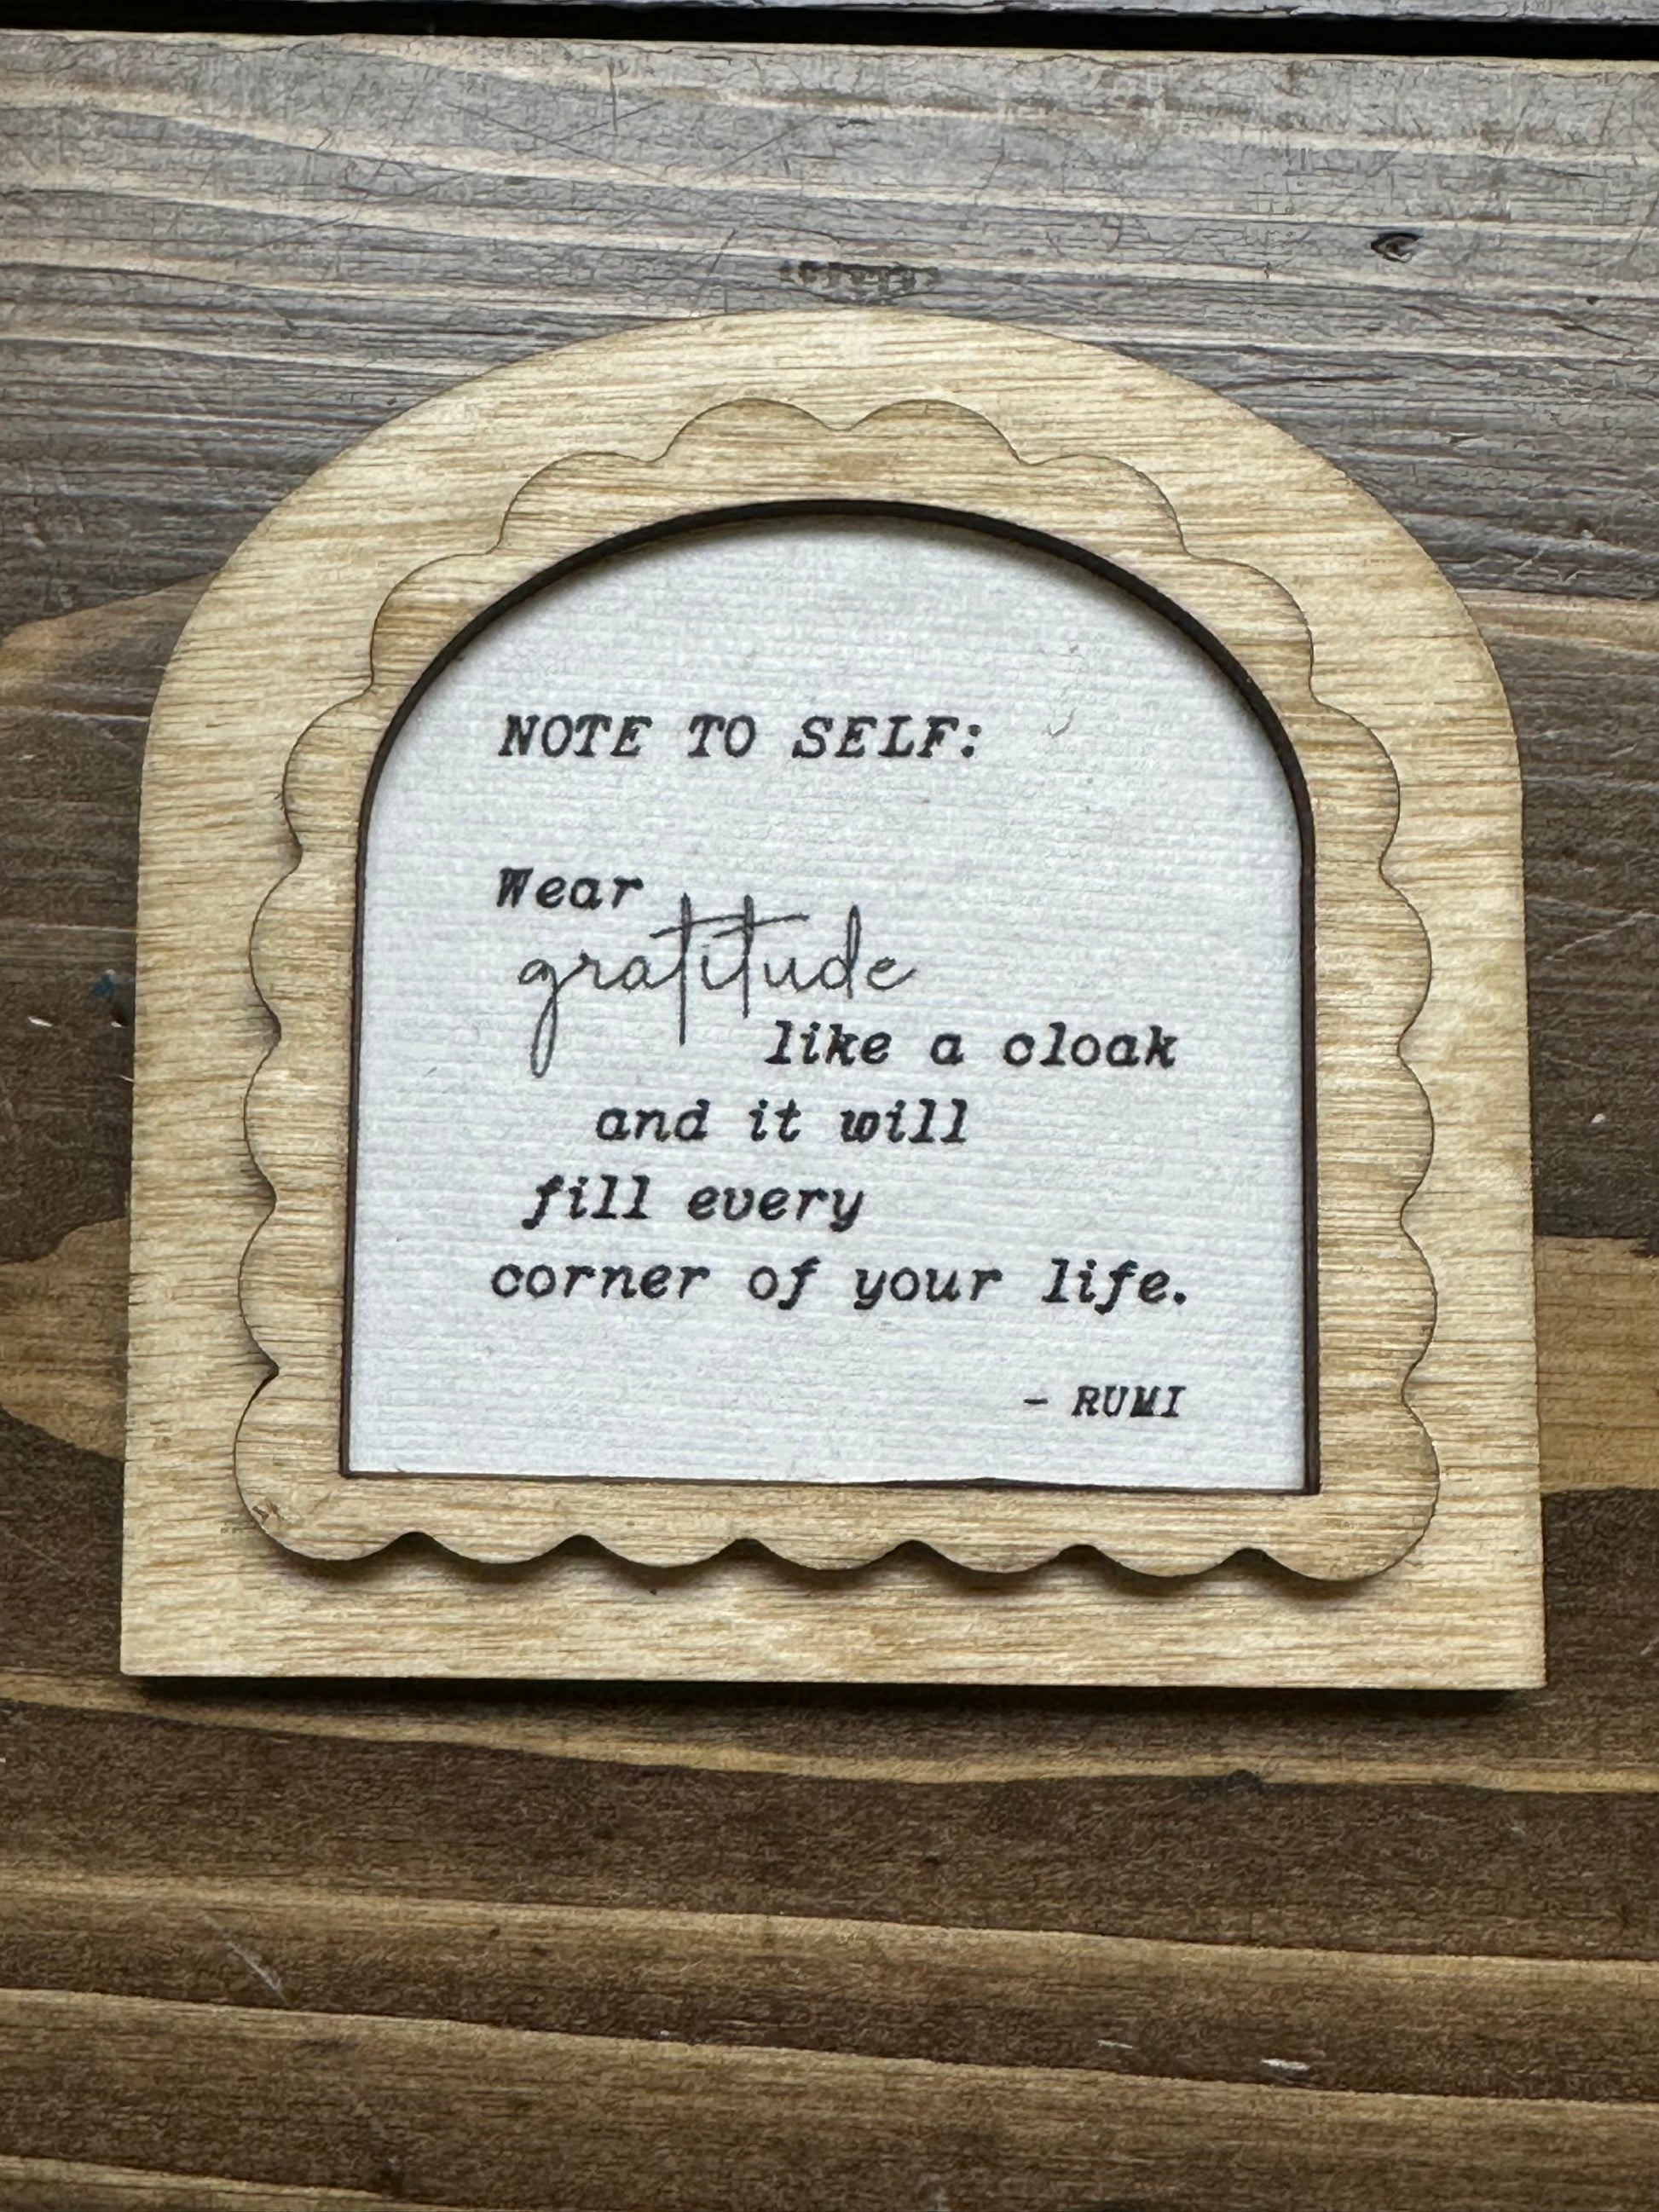 NOTE TO SELF:
Wear
gratitude
like a cloak
and it will
fill every
corner of your life.
- RUMI